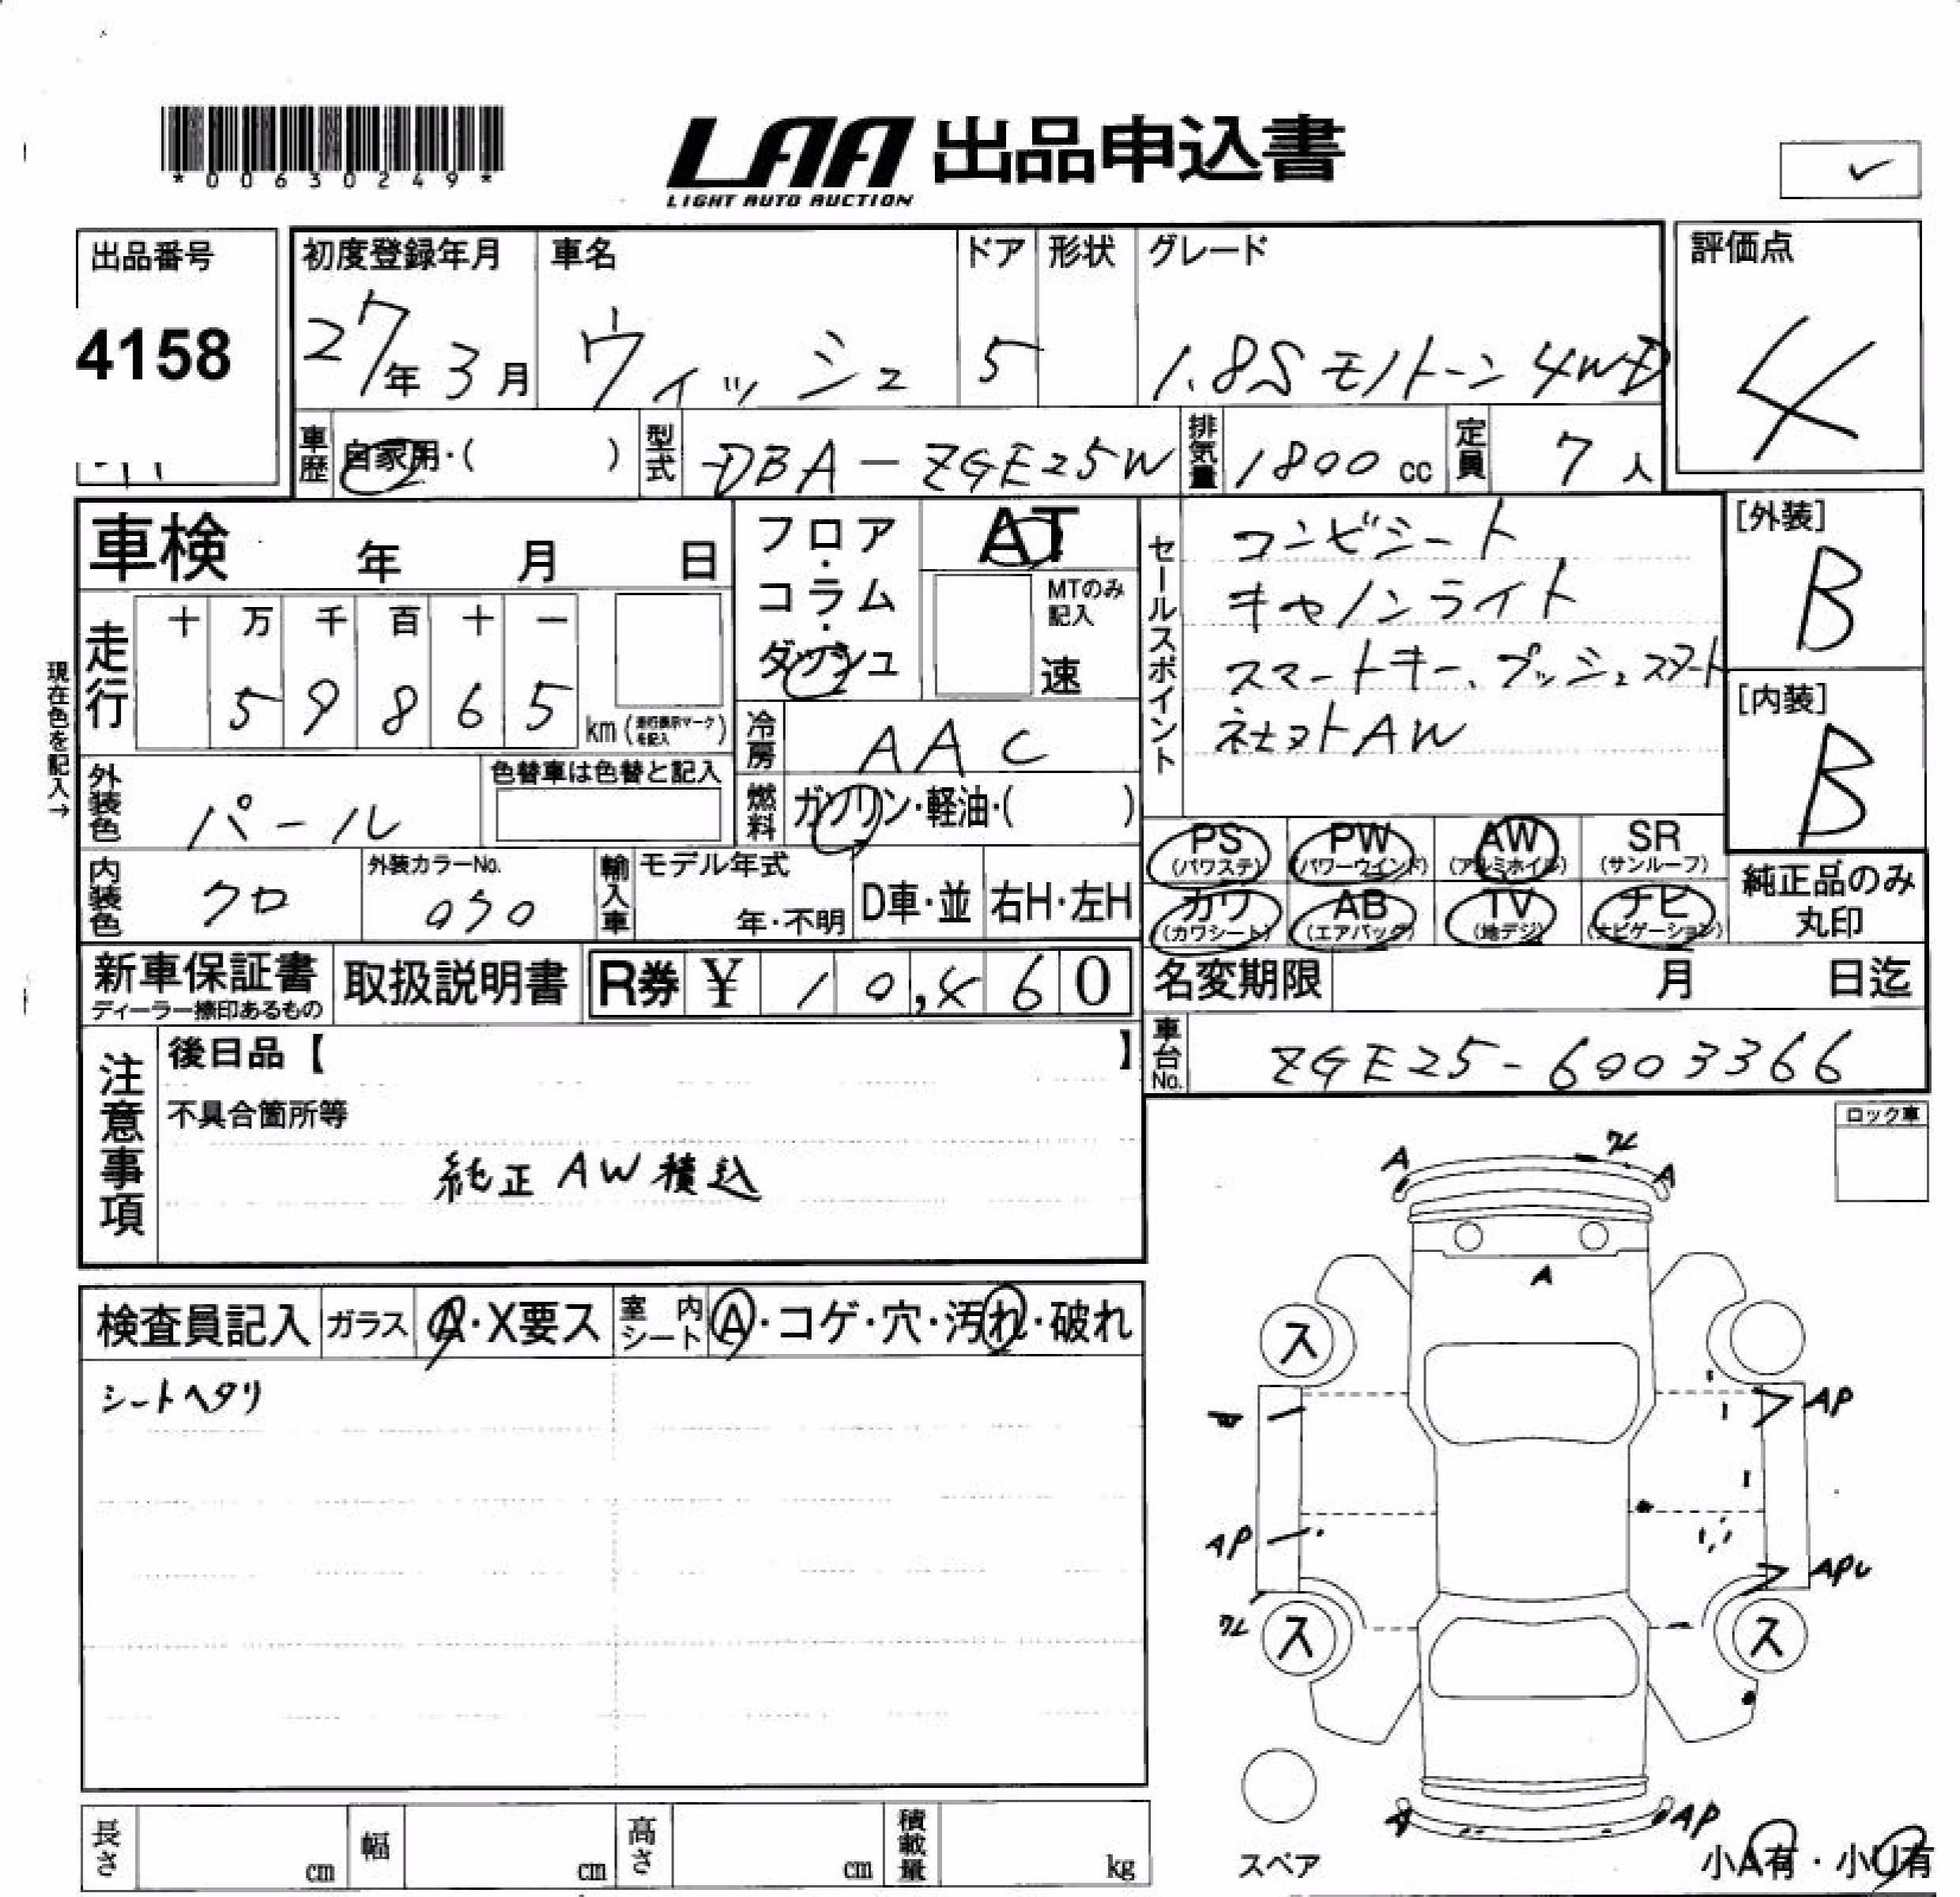 *00630249*
LAA 出品申込書
LIGHT AUTO AUCTION
出品番号
4158
初度登録年月
27年3月
車名
ウィッシュ
ドア
5
形状
グレード
1.8S モノトーン 4WD
評価点
4
車歴
自家用・( )
型式
DBA-ZGE25W
排気量
1800 cc
定員
7 人
車検 年 月 日
フロア・コラム・ダッシュ
AT
MTのみ記入
速
セールスポイント
コンビシート
キャノンライト
スマートキー、プッシュスタート
社外AW
[外装]
B
[内装]
B
現在色を記入→
走行
十 万 千 百 十 一
5 9 8 6 5
km (走行表示マークを記入)
冷房
AAC
外装色
パール
色替車は色替と記入
燃料
ガソリン・軽油・( )
PS (パワステ)
PW (パワーウインド)
AW (アルミホイル)
SR (サンルーフ)
カワ (カワシート)
AB (エアバック)
TV (地デジ)
ナビ (ナビゲーション)
純正品のみ丸印
内装色
クロ
外装カラーNo.
070
輸入車
モデル年式
年・不明
D車・並
右H・左H
新車保証書
ディーラー捺印あるもの
取扱説明書
R券 ¥ 10,460
名変期限 月 日迄
車台No.
ZGE25-6003366
注意事項
後日品【 】
不具合箇所等
純正AW積込
ロック車
検査員記入
ガラス
A・X要ス
室内シート
A・コゲ・穴・汚れ・破れ
シートヘタリ
A
ワレ
A
A
ス
AP
AP
APU
ワレ
ス
ス
A
AP
スペア
小A有・小U有
長さ cm
幅 cm
高さ cm
積載量 kg